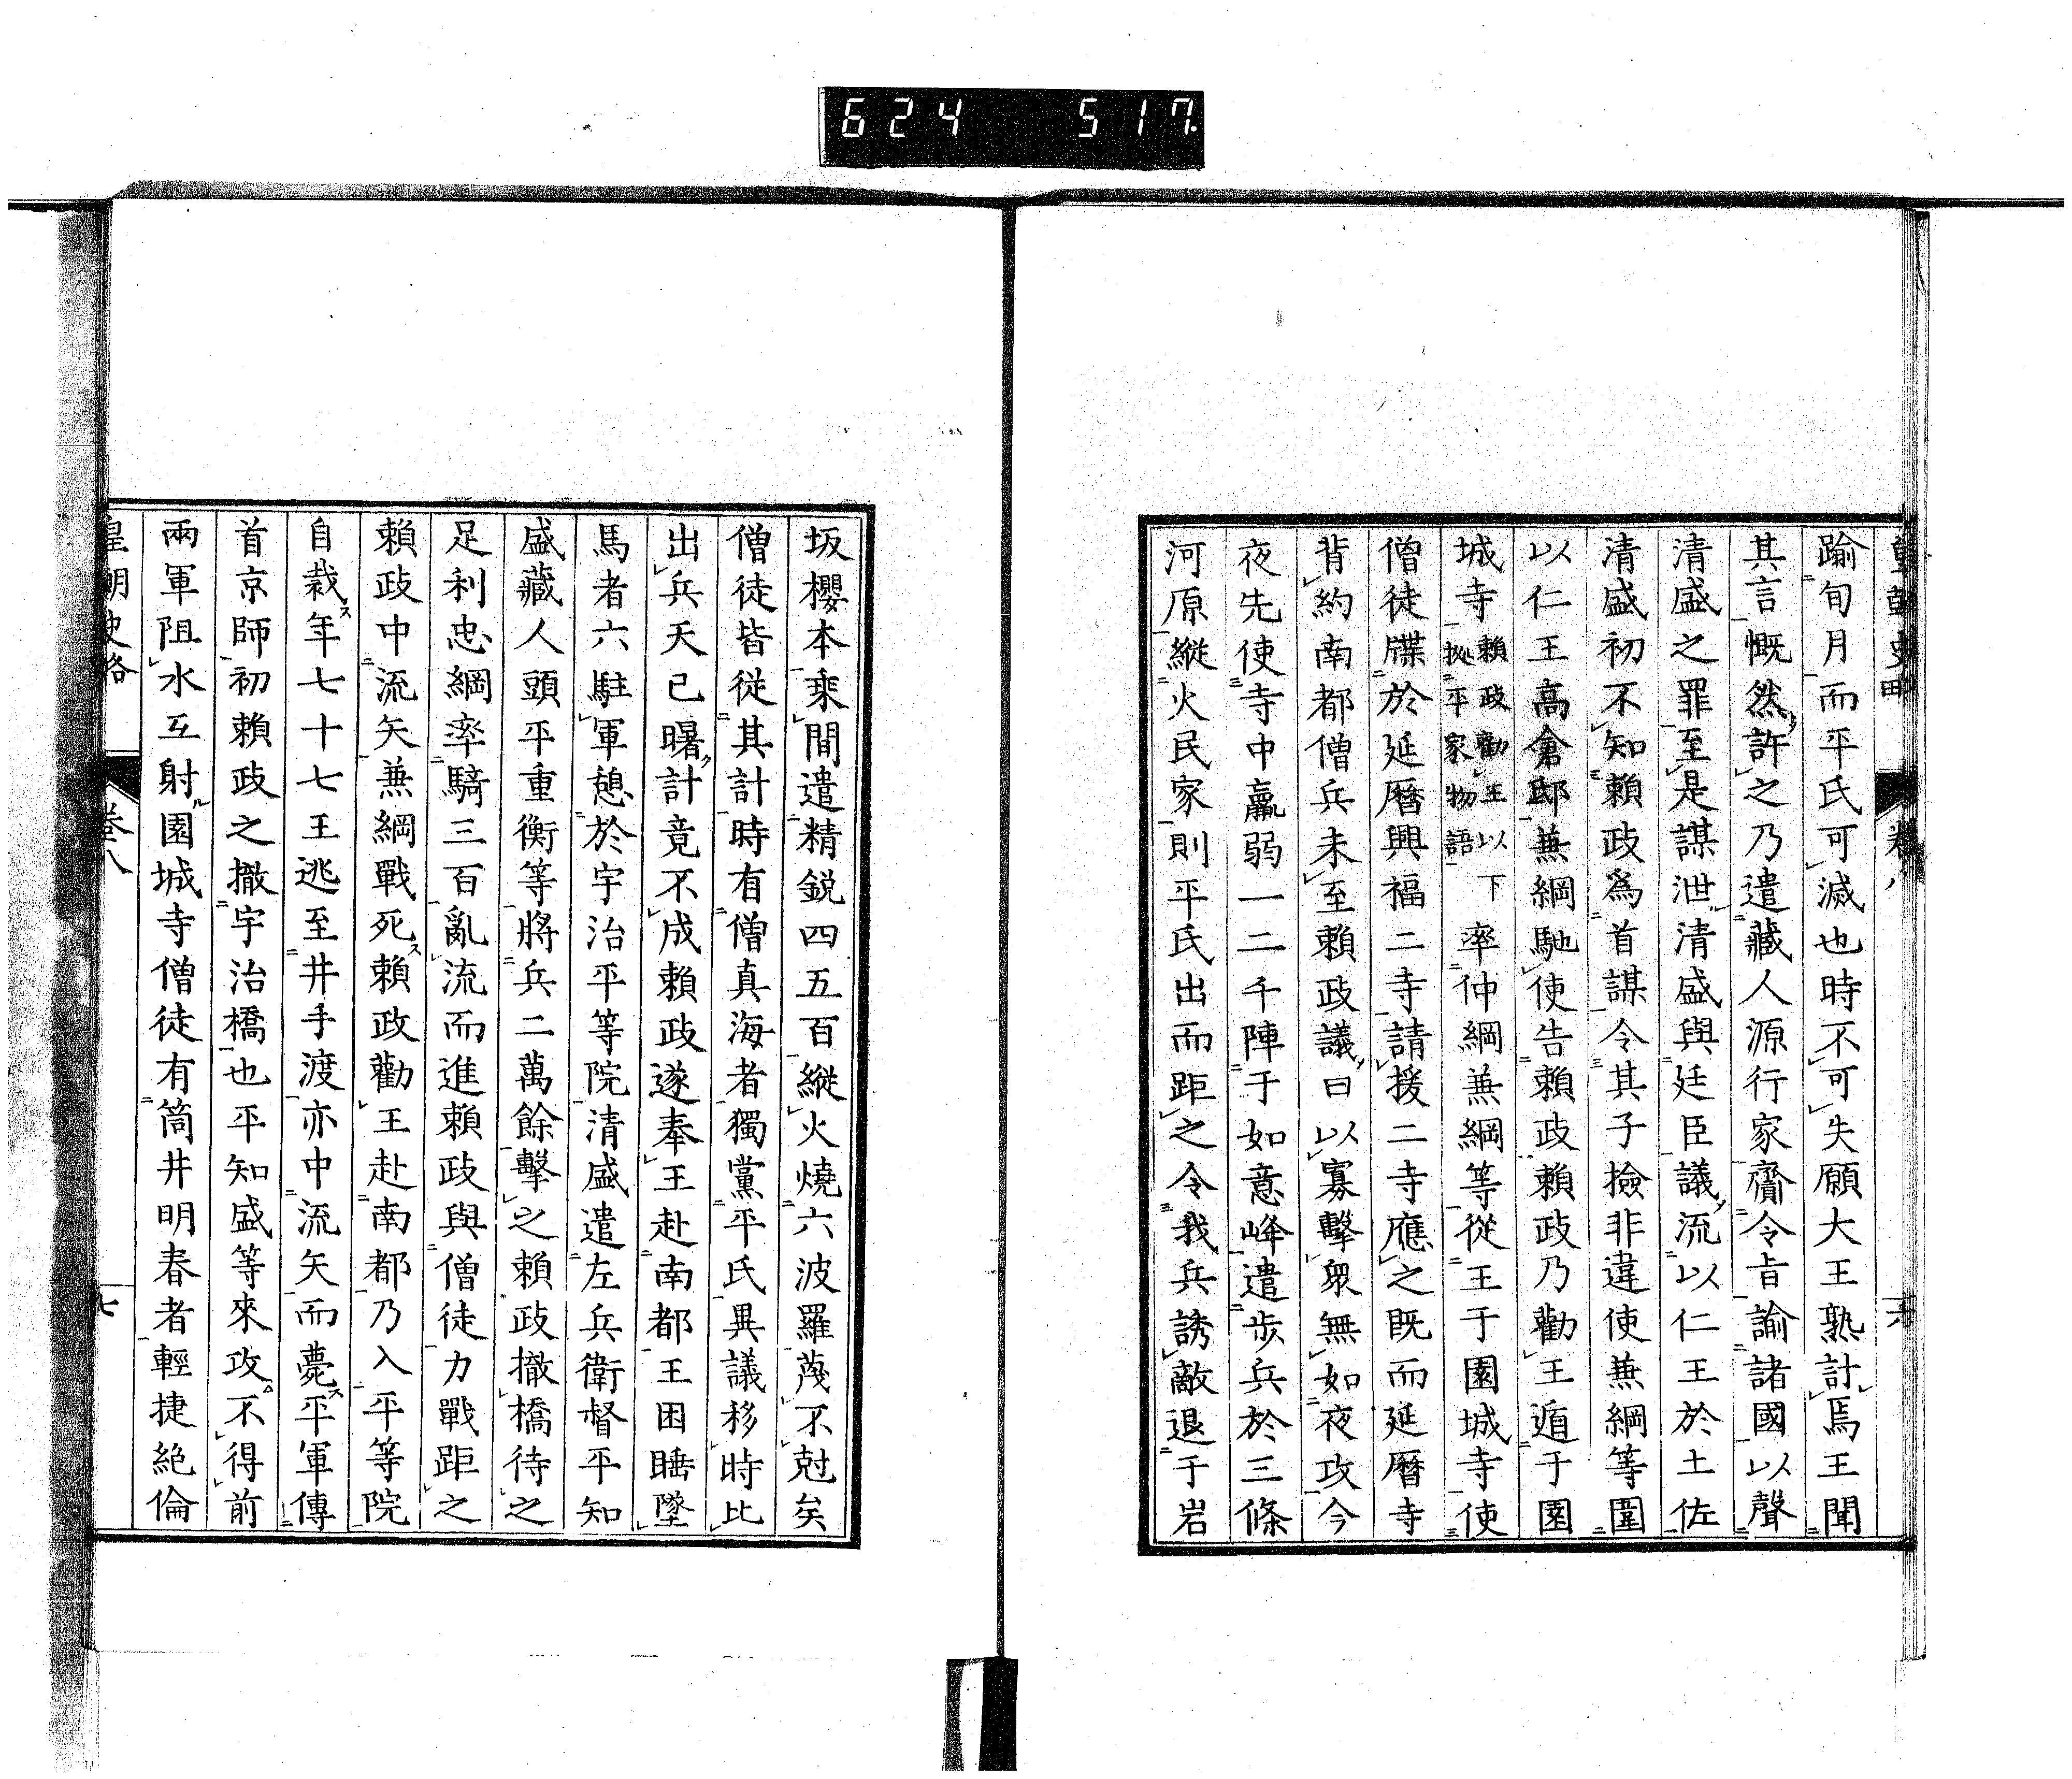 624 517
皇朝史略 卷八 六
踰旬月而平氏可滅也時不可失願大王熟計焉王聞
其言慨然許之乃遣藏人源行家齎令旨諭諸國以聲
清盛之罪至是謀泄清盛與廷臣議流以仁王於土佐
清盛初不知賴政爲首謀令其子撿非違使兼綱等圍
以仁王高倉邸兼綱馳使告賴政賴政乃勸王遁于園
城寺賴政勸王以下拠平家物語率仲綱兼綱等從王于園城寺使
僧徒牒於延曆興福二寺請援二寺應之既而延曆寺
背約南都僧兵未至賴政議曰以寡擊衆無如夜攻今
夜先使寺中羸弱一二千陣于如意峰遣步兵於三條
河原縱火民家則平氏出而距之令我兵誘敵退于岩
坂櫻本乘間遣精銳四五百縱火燒六波羅蔑不尅矣
僧徒皆從其計時有僧真海者獨黨平氏異議移時比
出兵天已曙計竟不成賴政遂奉王赴南都王困睡墜
馬者六駐軍憩於宇治平等院清盛遣左兵衛督平知
盛藏人頭平重衡等將兵二萬餘擊之賴政撤橋待之
足利忠綱率騎三百亂流而進賴政與僧徒力戰距之
賴政中流矢兼綱戰死賴政勸王赴南都乃入平等院
自裁年七十七王逃至井手渡亦中流矢而薨平軍傳
首京師初賴政之撤宇治橋也平知盛等來攻不得前
兩軍阻水互射園城寺僧徒有筒井明春者輕捷絶倫
皇朝史略 卷八 七